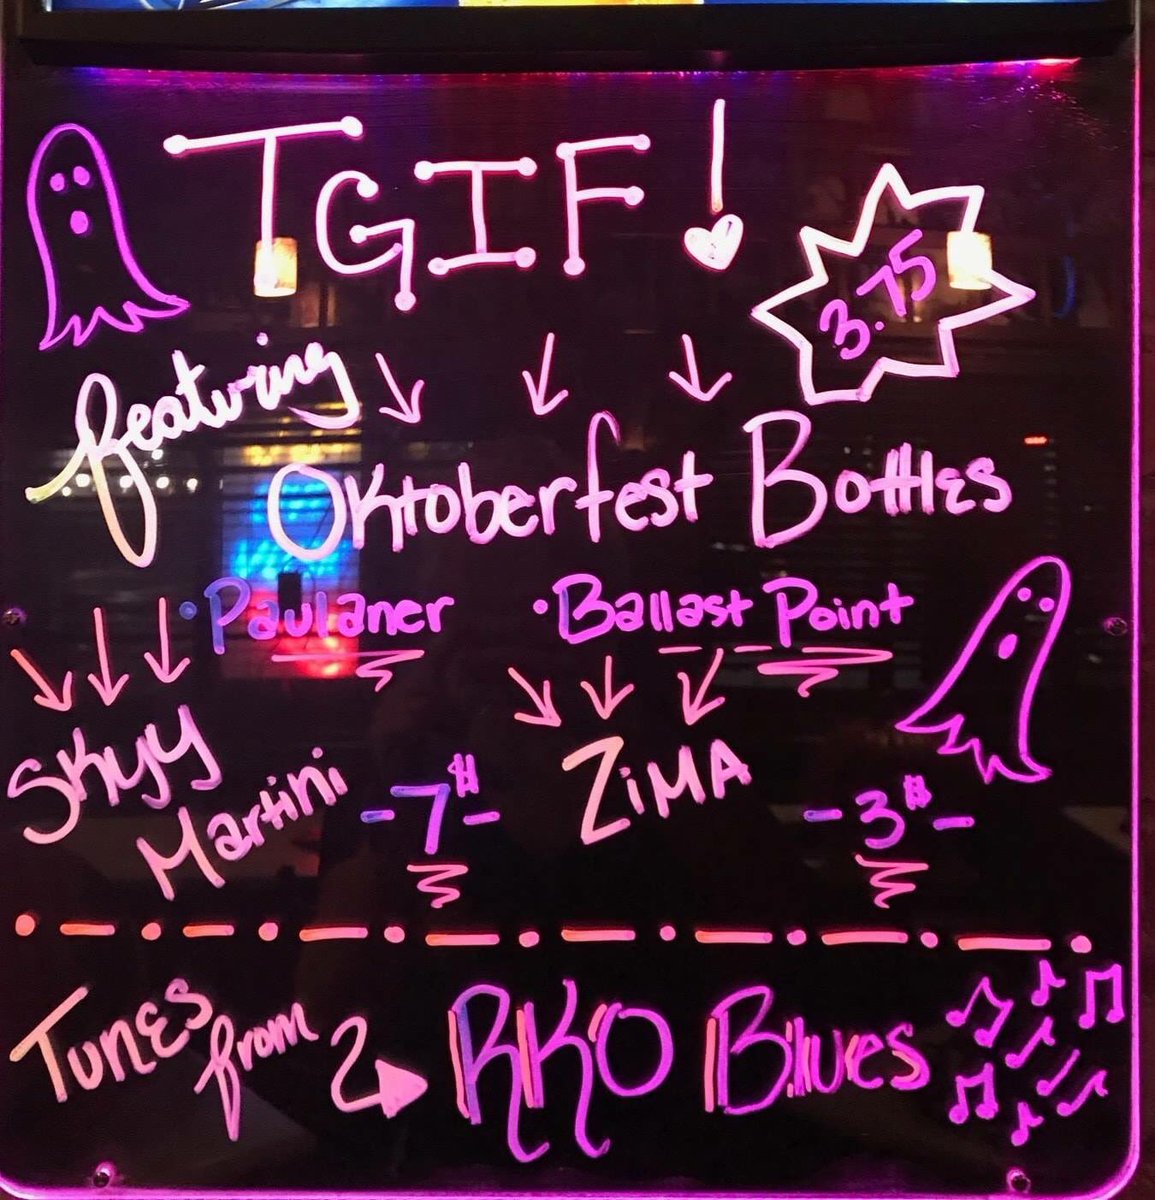 TGIF!
3.75
featuring
Oktoberfest Bottles
• Paulaner • Ballast Point
Skyy
Martini -7$-
ZiMA -3$-
Tunes from RKO Blues